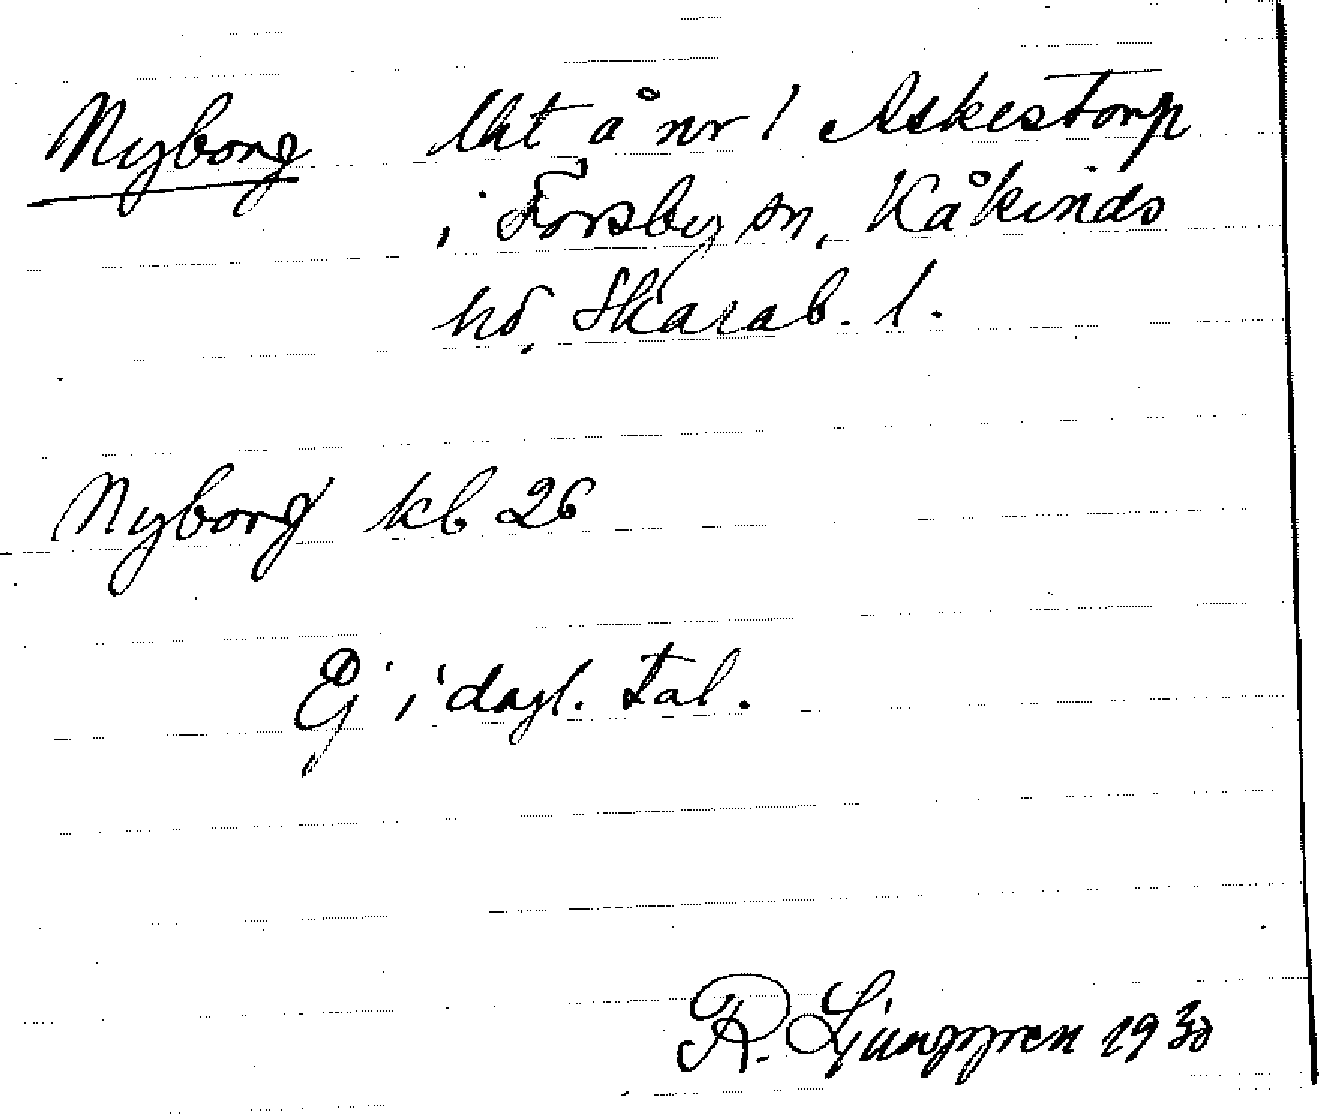 Nyborg lht å nr 1 Askestorp
i Forsby sn, Kåkinds
hd, Skarab. l.
Nyborg kb 26
Ej i dagl. tal.
R. Ljunggren 1930